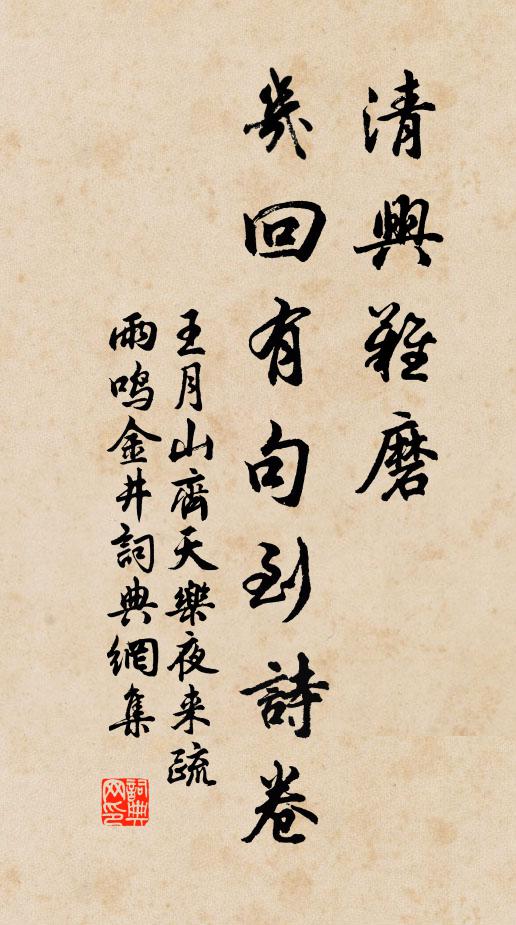 清興難磨
幾回有句到詩卷
王月山齊天樂夜来疏
雨鳴金井詞典網集
詞典
网印